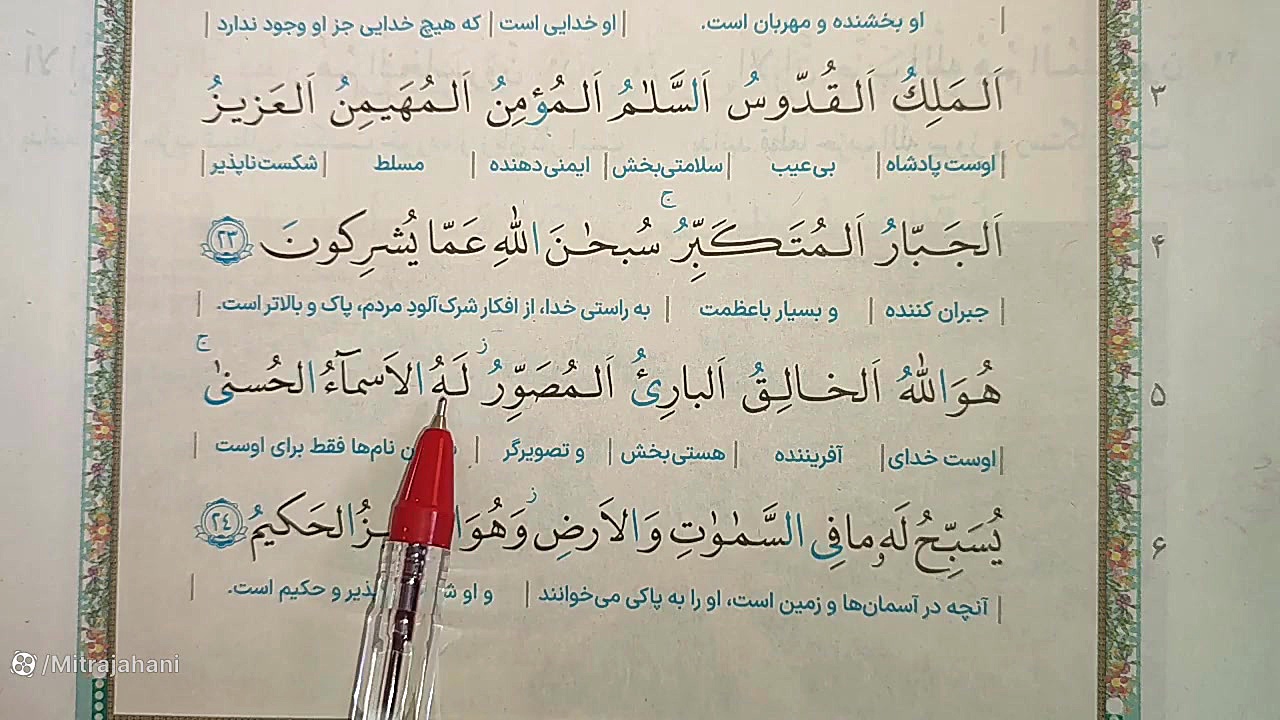 او بخشنده و مهربان است. | او خدایی است | که هیچ خدایی جز او وجود ندارد
۳ اَلمَلِكُ اَلقُدّوسُ اَلسَّلٰمُ اَلمُؤمِنُ اَلمُهَيمِنُ اَلعَزيزُ
اوست پادشاه | بی‌عیب | سلامتی‌بخش | ایمنی‌دهنده | مسلط | شکست‌ناپذیر
۴ اَلجَبّارُ اَلمُتَكَبِّرُ ۚ سُبحٰنَ اللّٰهِ عَمّا يُشرِكونَ ٢٣
جبران کننده | و بسیار باعظمت | به راستی خدا، از افکار شرک‌آلودِ مردم، پاک و بالاتر است.
۵ هُوَ اللّٰهُ اَلخالِقُ اَلبارِئُ اَلمُصَوِّرُ ز لَهُ الاَسمآءُ الحُسنىٰ ۚ
اوست خدای | آفریننده | هستی‌بخش | و تصویرگر | نام‌ها فقط برای اوست
۶ يُسَبِّحُ لَهٗ ما فِی السَّمٰوٰتِ وَ الاَرضِ ز وَ هُوَ الحَكيمُ ٢٤
آنچه در آسمان‌ها و زمین است، او را به پاکی می‌خوانند | و او و حکیم است.
/Mitrajahani